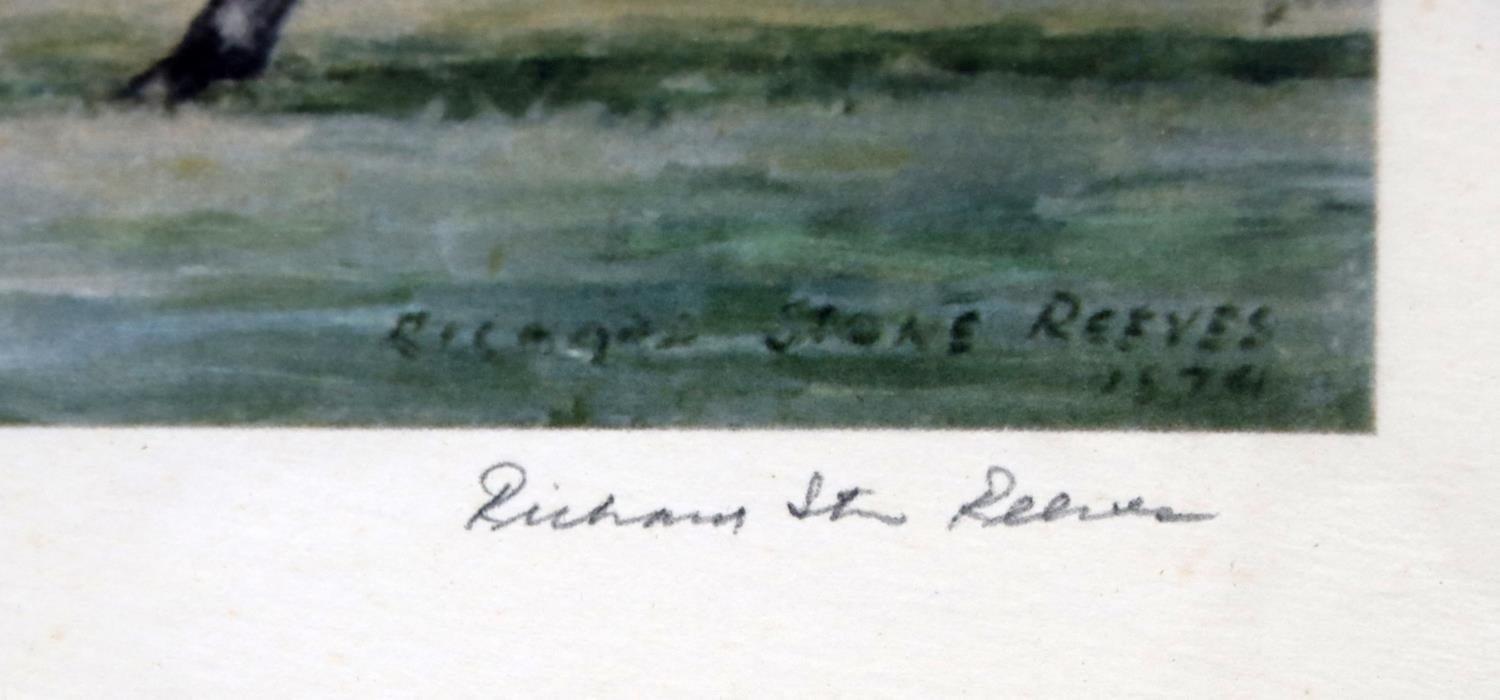 RICHARD STONE REEVES
1974
Richard Stone Reeves